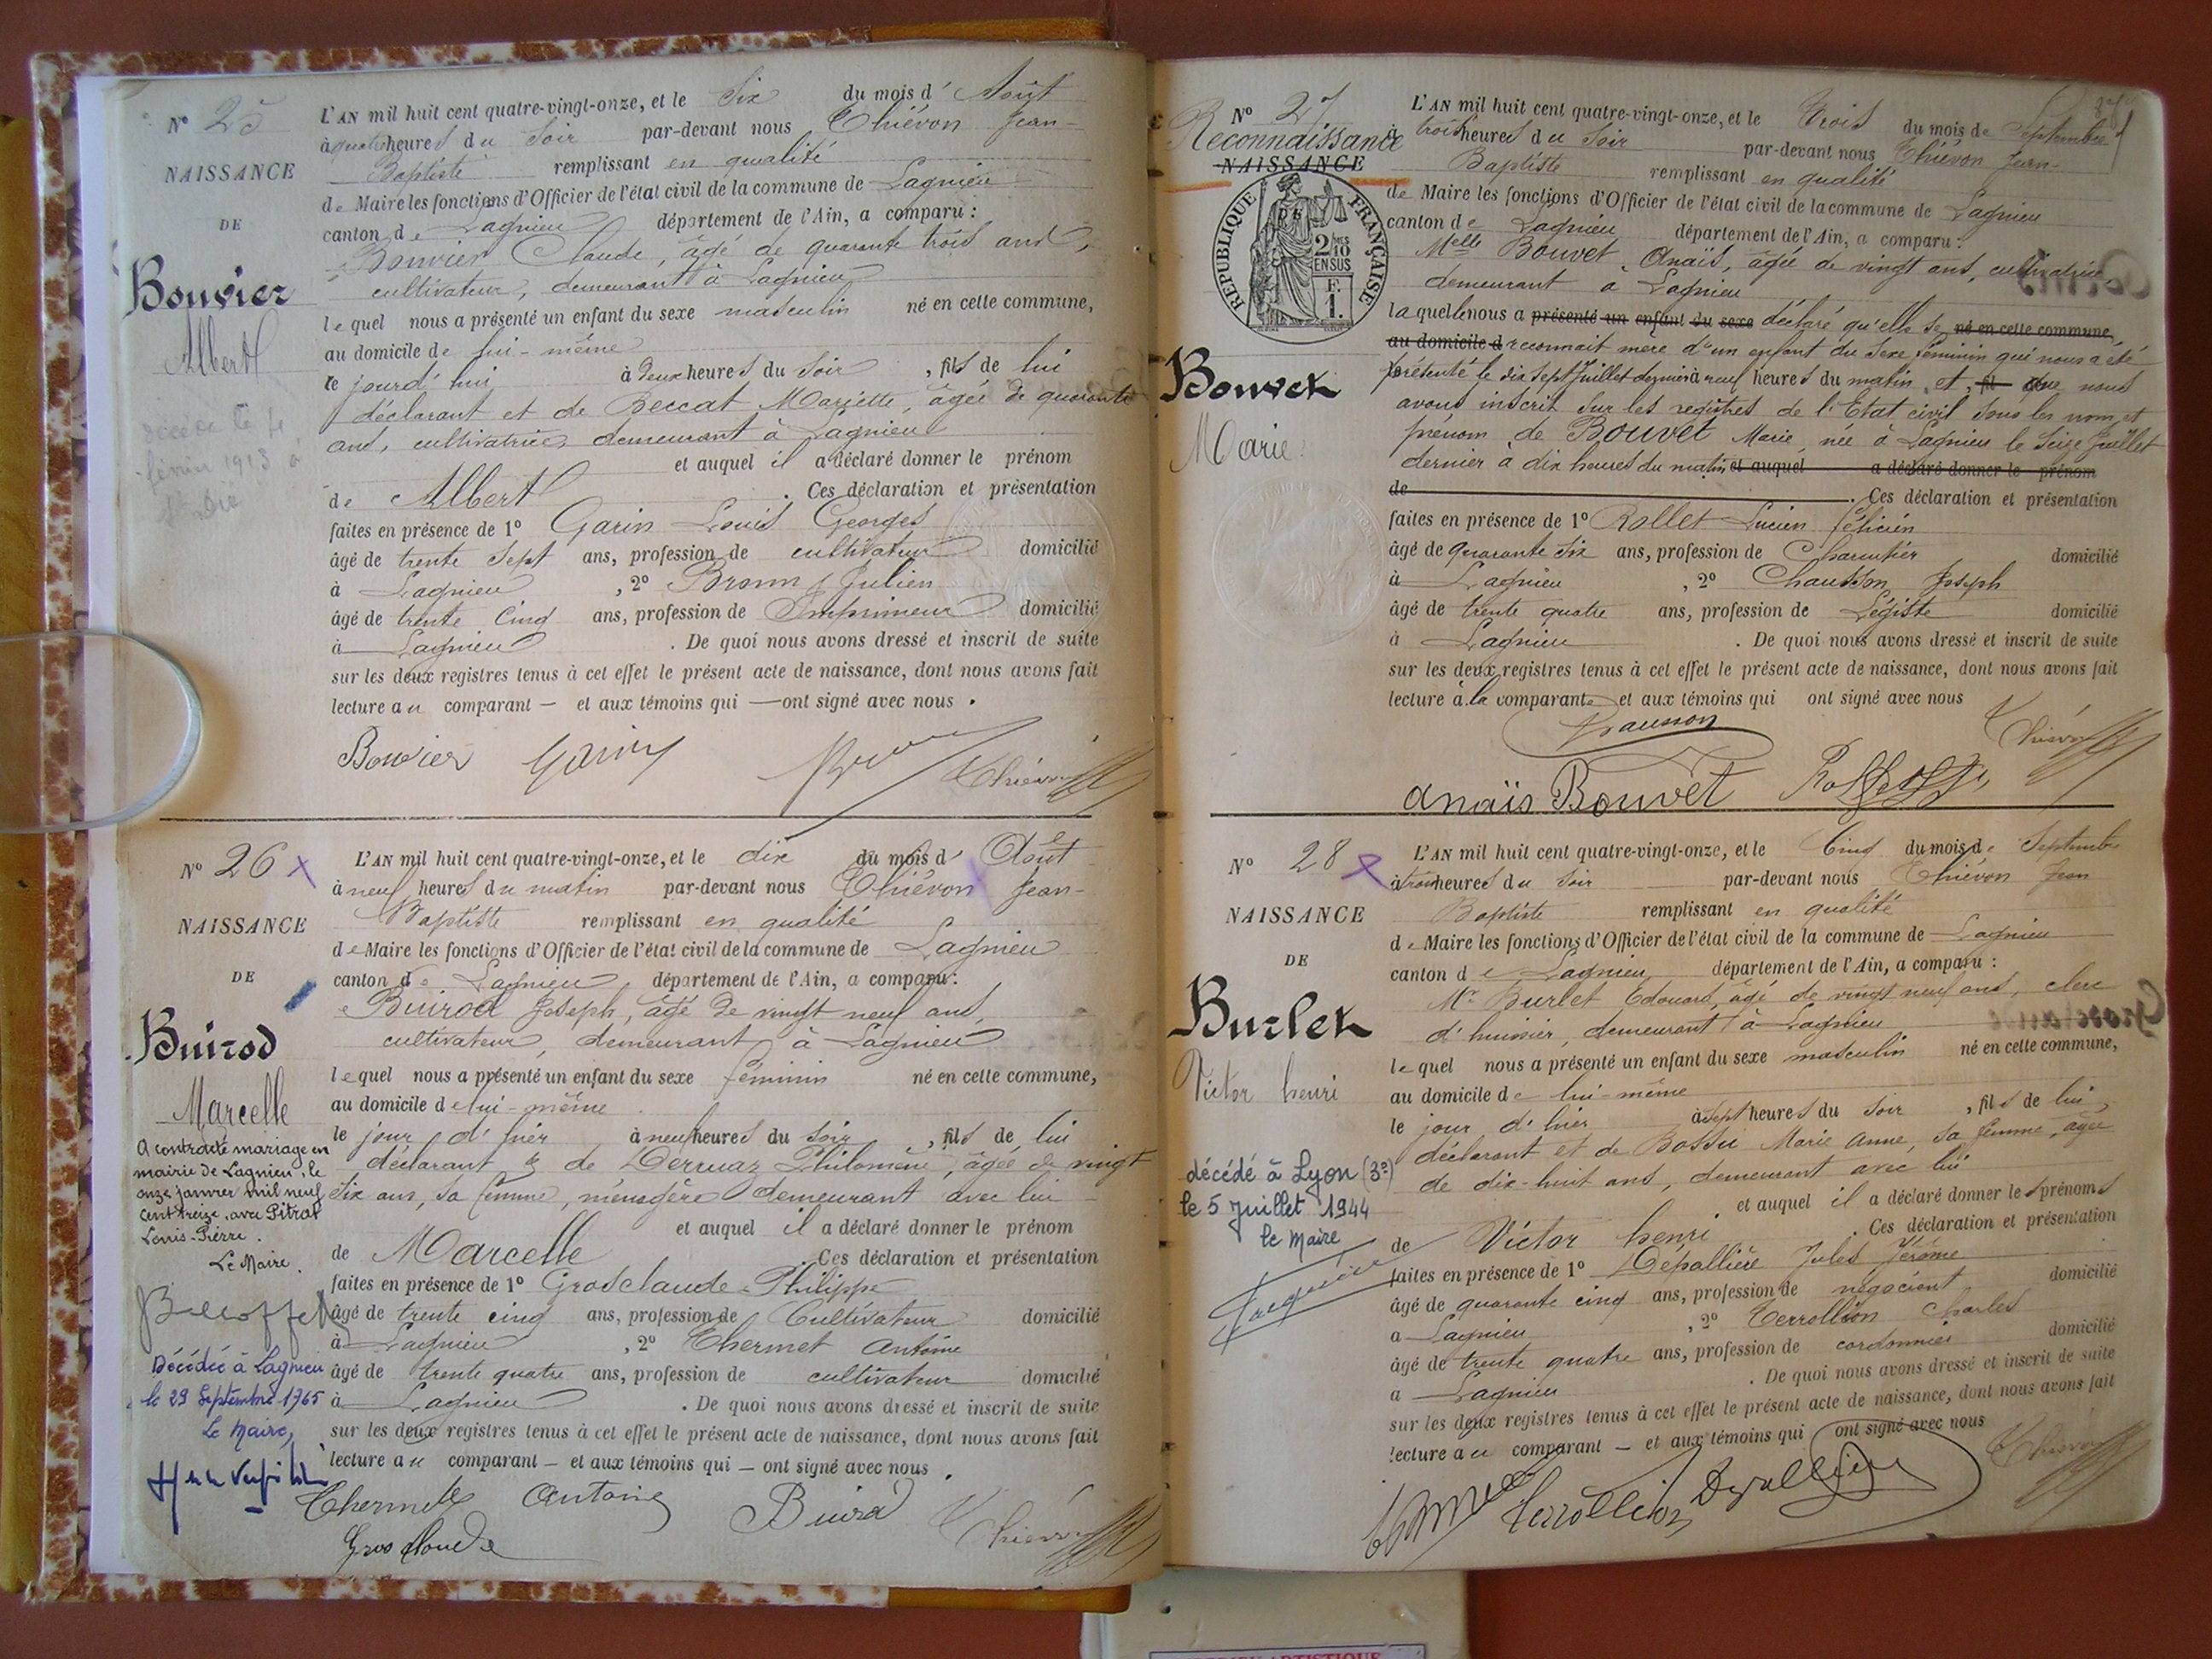 N° 25
NAISSANCE
DE
Bouvier
Albert
décédé le 4
février 1913 à
L'AN mil huit cent quatre-vingt-onze, et le Six du mois d' Août
à quatre heures du Soir par-devant nous Thiévon Jean-
Baptiste remplissant en qualité
de Maire les fonctions d'Officier de l'état civil de la commune de Lagnieu
canton de Lagnieu département de l'Ain, a comparu :
Bouvier Claude, âgé de quarante trois ans,
cultivateur, demeurant à Lagnieu
lequel nous a présenté un enfant du sexe masculin né en cette commune,
au domicile de lui-même
le jourd'hui à deux heures du soir, fils de lui
déclarant et de Beccat Mariette, âgée de quarante
ans, cultivatrice, demeurant à Lagnieu
et auquel il a déclaré donner le prénom
de Albert. Ces déclaration et présentation
faites en présence de 1° Garin Louis Georges
âgé de trente Sept ans, profession de cultivateur domicilié
à Lagnieu, 2° Julien
âgé de trente Cinq ans, profession de Imprimeur domicilié
à Lagnieu. De quoi nous avons dressé et inscrit de suite
sur les deux registres tenus à cet effet le présent acte de naissance, dont nous avons fait
lecture au comparant — et aux témoins qui — ont signé avec nous.
Bouvier Garin Thiévon
N° 26 x
NAISSANCE
DE
Buirod
Marcelle
A contracté mariage en
mairie de Lagnieu, le
onze janvier mil neuf
cent treize, avec Pitrat
Louis-Pierre.
Le Maire.
Décédée à Lagnieu
le 29 Septembre 1965
Le Maire,
L'AN mil huit cent quatre-vingt-onze, et le dix du mois d' Août
à neuf heures du matin par-devant nous Thiévon Jean-
Baptiste remplissant en qualité
de Maire les fonctions d'Officier de l'état civil de la commune de Lagnieu
canton de Lagnieu, département de l'Ain, a comparu :
Buirod Joseph, âgé de vingt neuf ans,
cultivateur, demeurant à Lagnieu
lequel nous a présenté un enfant du sexe féminin né en cette commune,
au domicile de lui-même
le jour d'hier à neuf heures du soir, fils de lui
déclarant & de Derruaz Philomène, âgée de vingt
six ans, sa femme, ménagère demeurant avec lui
et auquel il a déclaré donner le prénom
de Marcelle. Ces déclaration et présentation
faites en présence de 1° Grosclaude Philippe
âgé de trente cinq ans, profession de Cultivateur domicilié
à Lagnieu, 2° Thermet Antoine
âgé de trente quatre ans, profession de cultivateur domicilié
à Lagnieu. De quoi nous avons dressé et inscrit de suite
sur les deux registres tenus à cet effet le présent acte de naissance, dont nous avons fait
lecture au comparant — et aux témoins qui — ont signé avec nous.
Thermet Antoine Buirod Thiévon
Grosclaude
N° 27
Reconnaissance
NAISSANCE
DE
REPUBLIQUE FRANÇAISE
2/10
EN SUS
F.
1.
Bouvet
Marie
L'AN mil huit cent quatre-vingt-onze, et le Trois du mois de Septembre
à trois heures du Soir par-devant nous Thiévon Jean-
Baptiste remplissant en qualité
de Maire les fonctions d'Officier de l'état civil de la commune de Lagnieu
canton de Lagnieu département de l'Ain, a comparu :
Melle Bouvet, Anaïs, âgée de vingt ans, cultivatrice
demeurant à Lagnieu
laquelle nous a présenté un enfant du sexe déclaré qu'elle se né en cette commune,
au domicile d reconnait mère d'un enfant du sexe féminin qui nous a été
présenté le dix sept Juillet dernier à neuf heures du matin, et, fil que nous
avons inscrit sur les registres de l'Etat civil sous les nom et
prénom de Bouvet Marie, née à Lagnieu le Seize Juillet
dernier à dix heures du matin et auquel a déclaré donner le prénom
de. Ces déclaration et présentation
faites en présence de 1° Rollet Lucien Félicien
âgé de quarante six ans, profession de Charcutier domicilié
à Lagnieu, 2° Chausson Joseph
âgé de trente quatre ans, profession de Légiste domicilié
à Lagnieu. De quoi nous avons dressé et inscrit de suite
sur les deux registres tenus à cet effet le présent acte de naissance, dont nous avons fait
lecture à la comparante et aux témoins qui ont signé avec nous
Chausson Thiévon
Anaïs Bouvet Rollet
N° 28 x
NAISSANCE
DE
Burlet
Victor henri
décédé à Lyon (3e)
le 5 Juillet 1944
le Maire
L'AN mil huit cent quatre-vingt-onze, et le Cinq du mois de Septembre
à trois heures du Soir par-devant nous Thiévon Jean
Baptiste remplissant en qualité
de Maire les fonctions d'Officier de l'état civil de la commune de Lagnieu
canton de Lagnieu, département de l'Ain, a comparu :
Mr Burlet Edouard, âgé de vingt neuf ans, clerc
d'huissier, demeurant à Lagnieu
lequel nous a présenté un enfant du sexe masculin né en cette commune,
au domicile de lui-même
le jour d'hier à sept heures du soir, fils de lui,
déclarant et de Bossu Marie Anne, sa femme, âgée
de dix-huit ans, demeurant avec lui
et auquel il a déclaré donner les prénoms
de Victor henri. Ces déclaration et présentation
faites en présence de 1° Dépallière Jules Jérôme
âgé de quarante cinq ans, profession de négociant domicilié
à Lagnieu, 2° Terrollion Charles
âgé de trente quatre ans, profession de cordonnier domicilié
à Lagnieu. De quoi nous avons dressé et inscrit de suite
sur les deux registres tenus à cet effet le présent acte de naissance, dont nous avons fait
lecture au comparant — et aux témoins qui ont signé avec nous
Terrollion Thiévon